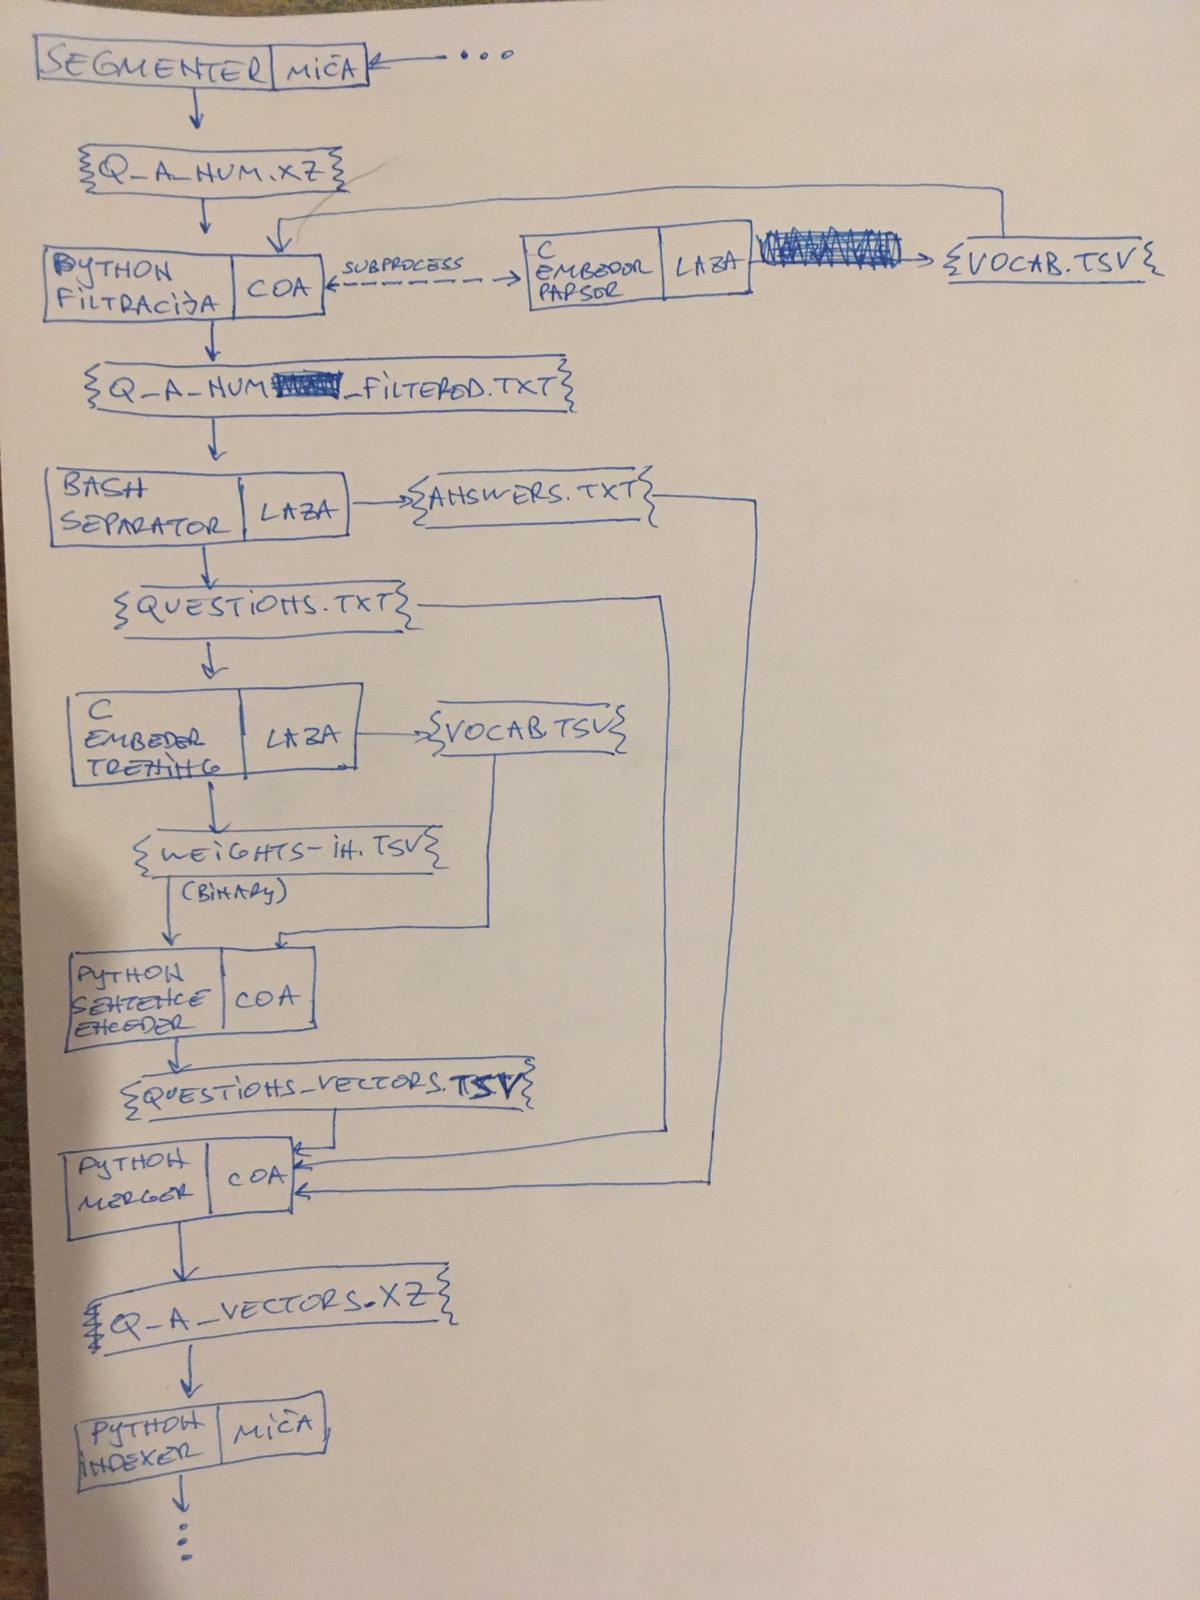 SEGMENTER MIĆA ...
Q_A_NUM.XZ
PYTHON
FILTRACIJA
COA
SUBPROCESS
C
EMBEDER
PARSER
LAZA
VOCAB.TSV
Q_A_NUM _FILTERED.TXT
BASH
SEPARATOR
LAZA
ANSWERS.TXT
QUESTIONS.TXT
C
EMBEDER
TRENING
LAZA
VOCAB.TSV
WEIGHTS-IH.TSV
(BINARY)
PYTHON
SENTENCE
ENCODER
COA
QUESTIONS_VECTORS.TSV
PYTHON
MERGER
COA
Q_A_VECTORS.XZ
PYTHON
INDEXER
MIĆA
...